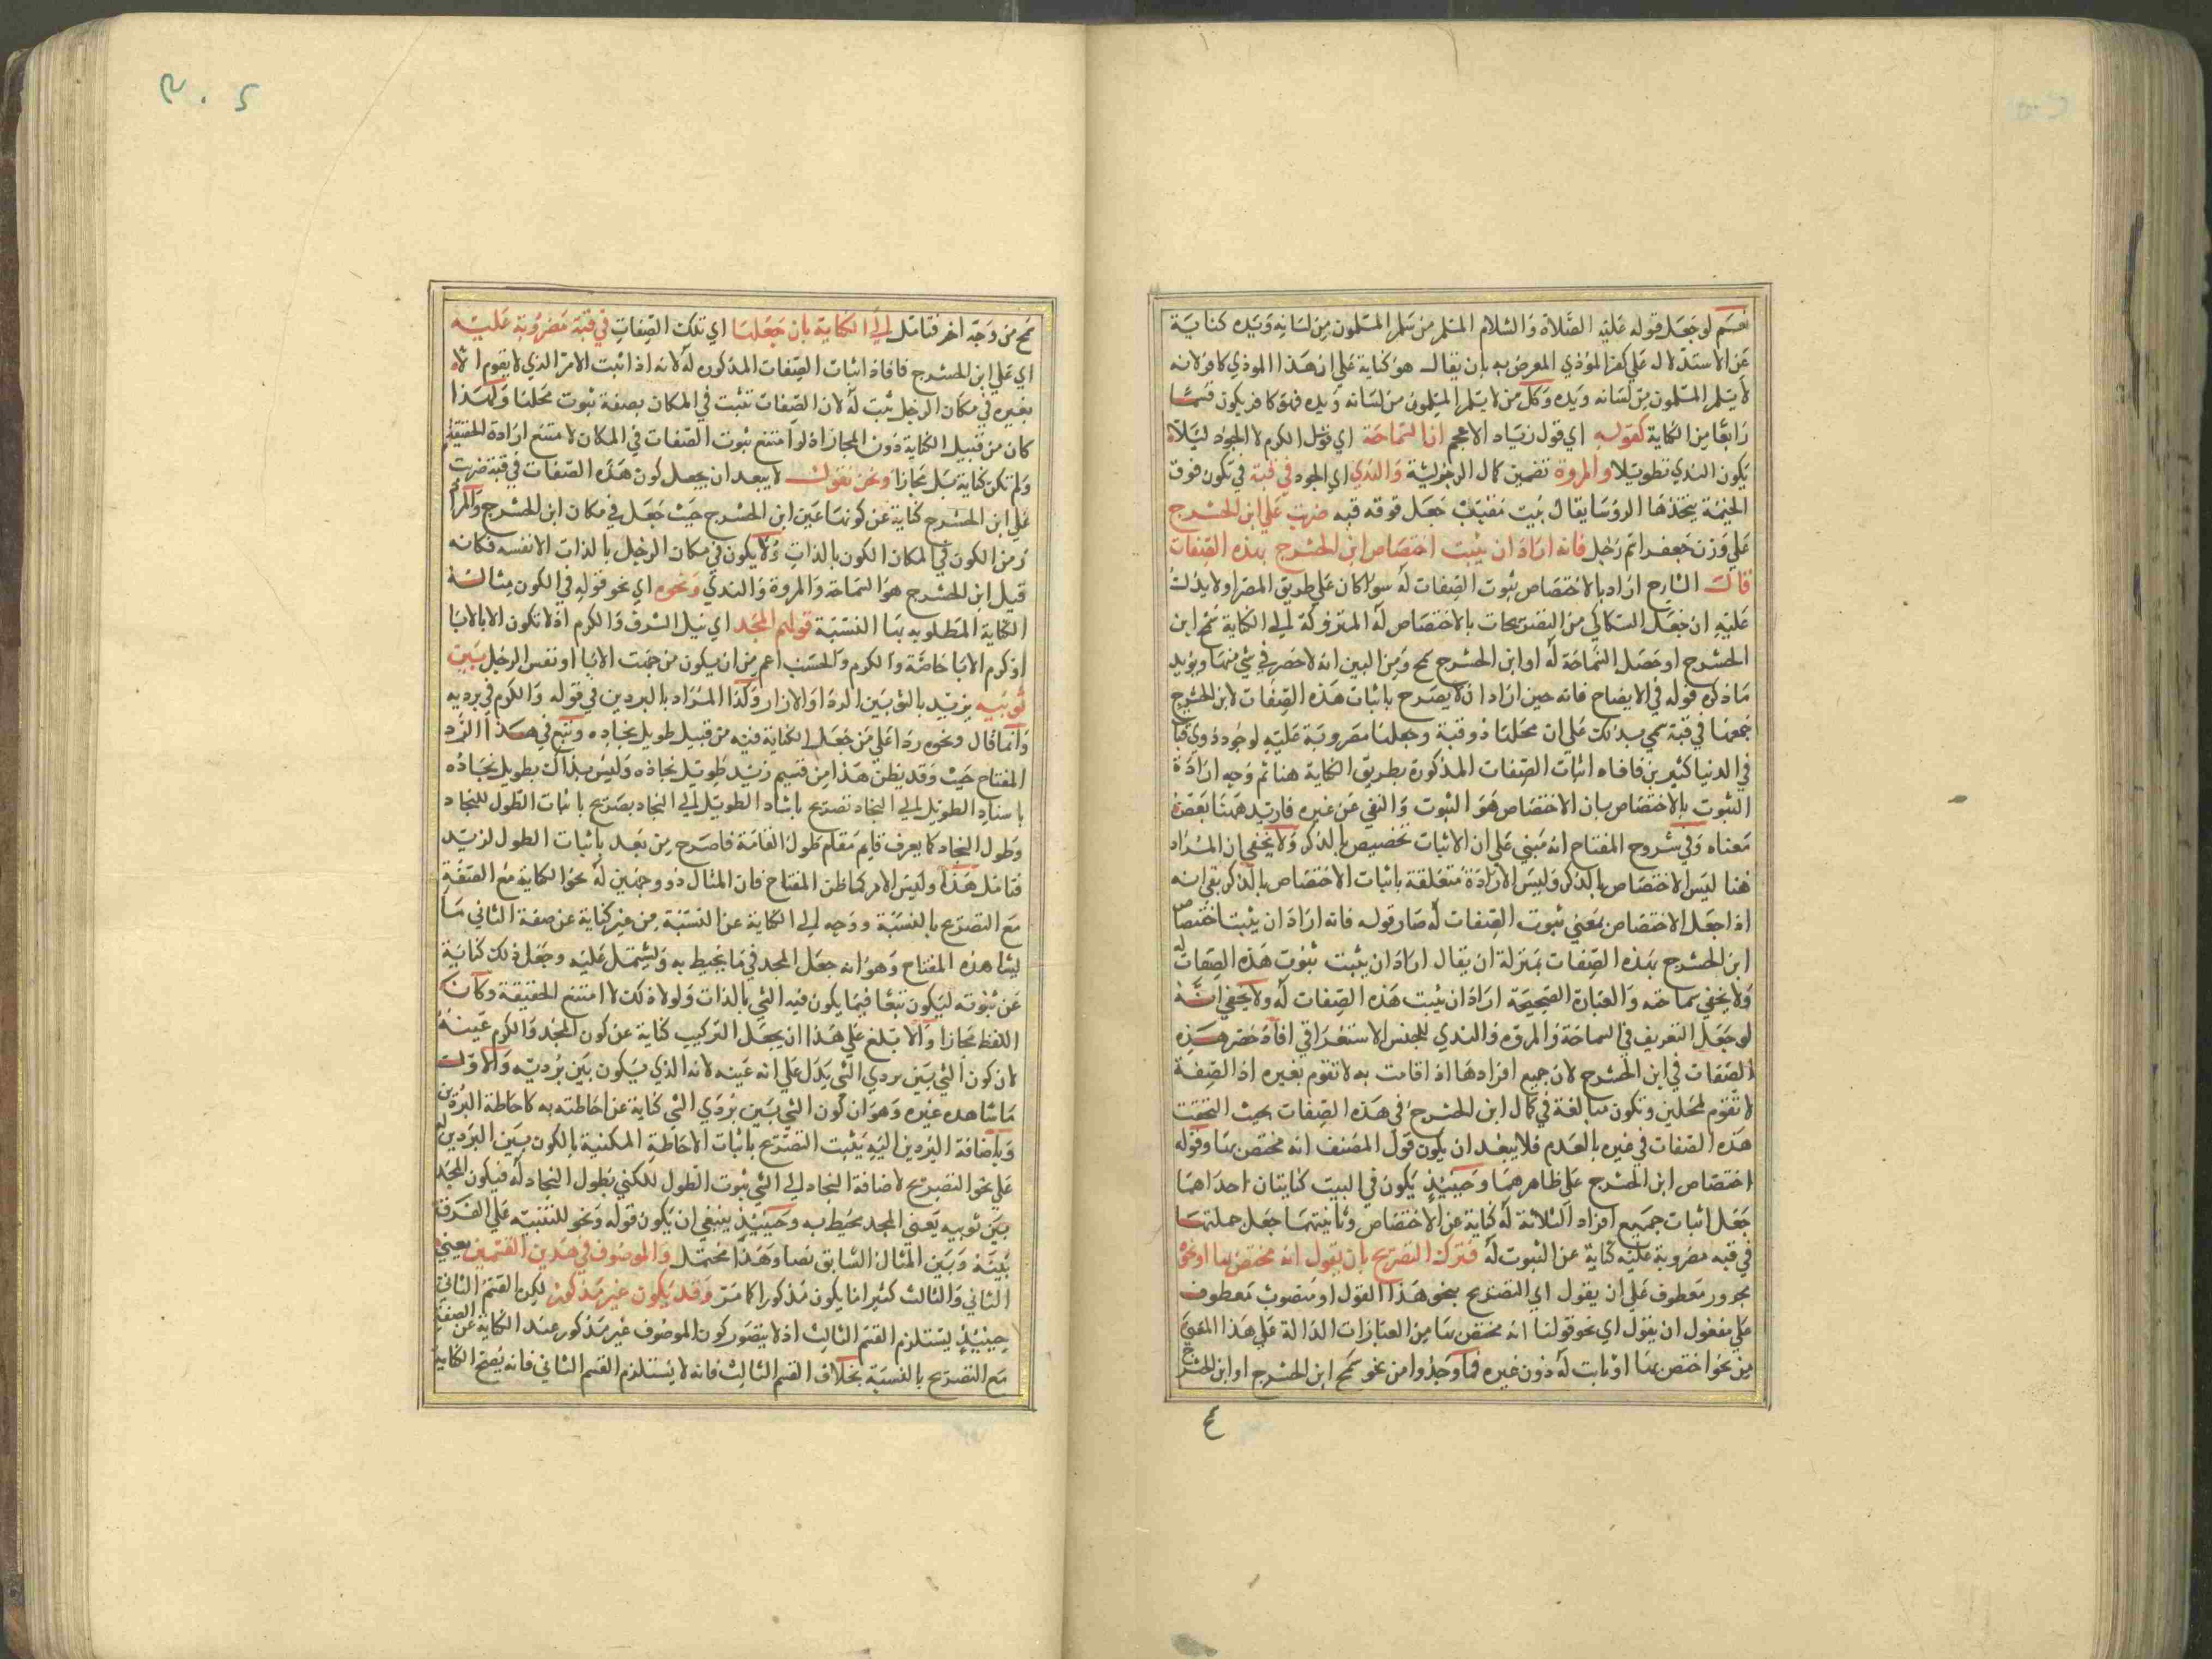 نعسم لو جعل قوله عليه الصلاة والسلام المسلم من سلم المسلمون من لسانه ويده كناية
عن الاستدلال علي كفر الموذي المعرض به بان يقال هو كناية علي ان هذا الموذي كافر لانه
لا يسلم المسلمون من لسانه ويده وكل من لا يسلم المسلمون من لسانه ويده فهو كافر يكون قسما
رابعا من الكناية كقوله اي قول زياد الاعجم ان السماحة اي الكرم لا الجود ليلا
يكون الندي تطويلا والمروة تضمين كمال الرجولية والندي اي الجود في قبة في تكون فوق
الخيمة يتخذها الروسا يقال بيت مقبب جعل فوقه قبه ضربت علي ابن الحشرج
علي وزن جعفر اسم رجل فانه اراد ان يثبت اختصاص ابن الحشرج بهذه الصفات
قال الشارح اراد بالاختصاص ثبوت الصفات له سوا كان علي طريق الحصر او لا يدلك
عليه ان جعل السكاكي من التصريحات بالاختصاص له المتروكة الي الكناية سمح ابن
الحشرج او حصل السماحة له او ابن الحشرج سمح ومن البين انه لا حصر في شي منها ويويد
ما ذكره قوله في الايضاح فانه حين اراد ان لا يصرح باثبات هذه الصفات لابن الحشرج
جمعها في قبة سمي بذلك علي ان محلها ذو قبة وجعلها مضروبة عليه لوجود ذوي قباب
في الدنيا كثيرين فافاد اثبات الصفات المذكورة بطريق الكناية هنا ثم وجه ارادة
الثبوت بالاختصاص بان الاختصاص هو الثبوت والنفي عن غيره فاريد ههنا بعض
معناه وفي شروح المفتاح انه مبني علي ان الاثبات تخصيص بالذكر ولا يخفي ان المراد
هنا ليس الاختصاص بالذكر وليس الارادة متعلقة باثبات الاختصاص بالذكر بقي انه
اذا جعل الاختصاص بمعني ثبوت الصفات له صار قوله فانه اراد ان يثبت اختصاص
ابن الحشرج بهذه الصفات بمنزلة ان يقال اراد ان يثبت ثبوت هذه الصفات له
ولا يخفي سماجته والعبارة الصحيحة اراد ان يثبت هذه الصفات له ولا يخفي انه
لو جعل التعريف في السماحة والمروه والندي للجنس الاستغراقي افاد حصر هذه
الصفات في ابن الحشرج لان جميع افرادها اذا قامت به لا تقوم بغيره اذ الصفة
لا تقوم لمحلين وتكون مبالغة في كمال ابن الحشرج في هذه الصفات بحيث التحقت
هذه الصفات في غيره بالعدم فلا يبعد ان يكون قول المصنف انه مختص بها وقوله
اختصاص ابن الحشرج علي ظاهرهما وحينيذ يكون في البيت كنايتان احداهما
جعل اثبات جميع افراد الثلاثة له كناية عن الاختصاص وثانيتهما جعل جملتها
في قبه مضروبة عليه كناية عن الثبوت له فترك التصريح بان يقول انه مختص بها او نحو
مجرور معطوف علي ان يقول اي التصريح بنحو هذا القول او منصوب معطوف
علي مفعول ان يقول اي نحو قولنا انه مختص بها من العبارات الدالة علي هذا المعني
من نحو اختص بها او ثابت له دون غيره فما وجدوا من نحو سمح ابن الحشرج او ابن الحشرج
٤
٢٠٣
سمح من وجه اخر فتامل الي الكناية بان جعلها اي تلك الصفات في قبة مضروبة عليه
اي علي ابن الحشرج فافاد اثبات الصفات المذكوره له لانه اذا اثبت الامر الذي لا يقوم الا
بغيره في مكان الرجل ثبت له لان الصفات تثبت في المكان بصفة ثبوت محلها ولهذا
كان من قبيل الكناية دون المجاز اذ لو امتنع ثبوت الصفات في المكان لامتنع ارادة الحقيقة
ولم تكن كناية بل مجازا ونحن نقول لا يبعد ان يجعل كون هذه الصفات في قبة ضربت
علي ابن الحشرج كناية عن كونها عين ابن الحشرج حيث جعل في مكان ابن الحشرج والمراد
من الكون في المكان الكون بالذات ولا يكون في مكان الرجل بالذات الا نفسه فكانه
قيل ابن الحشرج هو السماحة والمروة والندي ونحوه اي نحو قوله في الكون مثالا
الكناية المطلوب بها النسبة قولهم المجد اي نيل الشرف والكرم اذ لا تكون الا بالابا
او كرم الابا خاصة والكرم والحسب اعم من ان يكون من جهت الابا او نفس الرجل بين
ثوبيه يريد بالثوبين الردا والازار وكذا المراد بالبردين في قوله والكرم في برديه
وانما قال ونحوه ردا علي من جعل الكناية فيه من قبيل طويل نجاده وتبع في هذا الرد
المفتاح حيث وقد يظن هذا من قسيم زيد طويل نجاده وليس بذاك بطويل نجاده
باسناد الطويل الي النجاد تصريح باثبات الطول للنجاد
وطول النجاد كما يعرف قايم مقام طول القامة فاصرح من بعد باثبات الطول لزيد
فتامل هذا وليس الامر كما ظن المفتاح فان المثال ذو وجهين له نحو الكناية مع الصفة
مع التصريح بالنسبة ووجه الي الكناية عن النسبة من غير كناية عن صفة الثاني ما
يشاهده المفتاح وهو انه جعل المجد في ما يحيط به ويشتمل عليه وجعل ذلك كناية
عن ثبوته ليكون تبعا فيما يكون فيه الشي بالذات ولولا ذلك لا امتنع الحقيقة وكان
اللفظ مجازا والابلغ علي هذا ان يجعل التركيب كناية عن كون المجد والكرم عينه
لان كون الشي بين بردي الشي يدل علي انه عينه لانه الذي يكون بين برديه والاول
ما شاهده غيره وهو ان كون الشي بين بردي الشي كناية عن احاطته به كاحاطة البردين
وباضافة البردين اليه يثبت التصريح باثبات الاحاطة المكنية بالكون بين البردين له
علي نحو التصريح لاضافة النجاد الي الشي ثبوت الطول للكني بطول النجاد له فيكون المجد
بين ثوبيه يعني المجد محيط به وحينيذ ينبغي ان يكون قوله ونحو للتنبيه علي الفرق
بينه وبين المثال السابق نصا وهذا محتمل والموصوف في هذين القسمين يعني
الثاني والثالث كثيرا ما يكون مذكورا كما مر وقد يكون غير مذكور لكن القسم الثاني
حينيذ يستلزم القسم الثالث اذ لا يتصور كون الموصوف غير مذكور عند الكناية عن الصفة
مع التصريح بالنسبة بخلاف القسم الثالث فانه لا يستلزم القسم الثاني فانه يصح الكناية